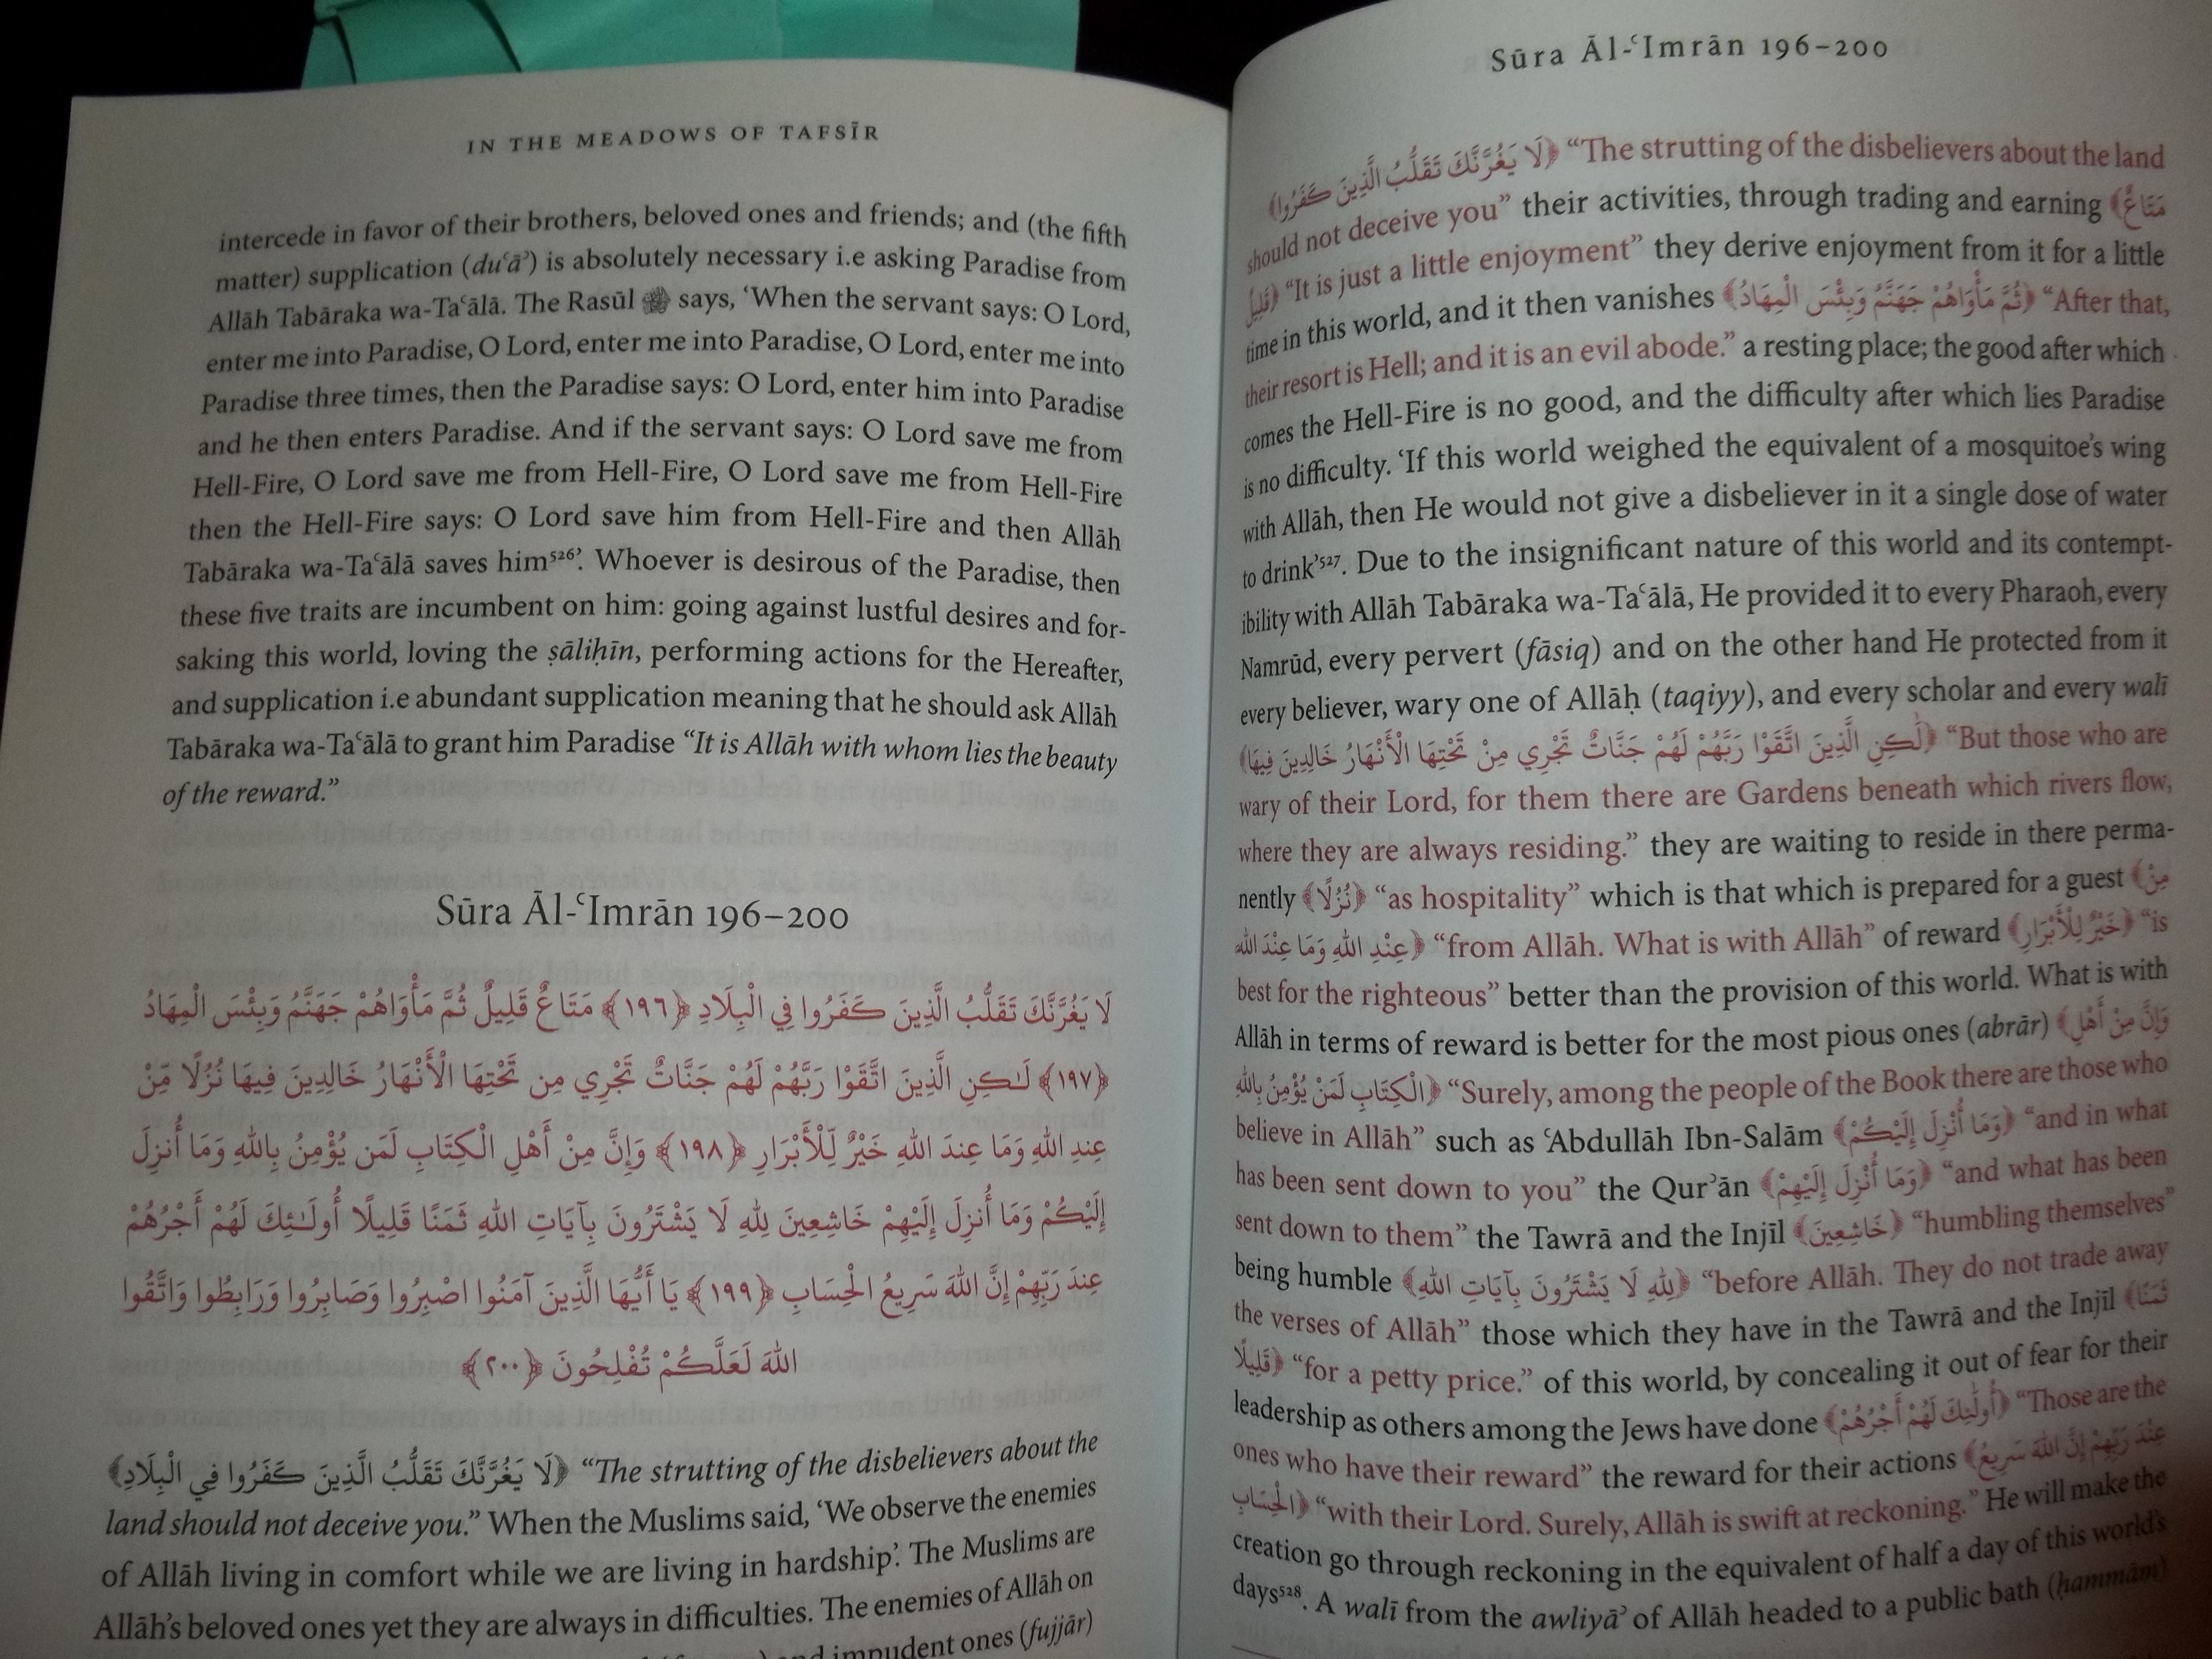 IN THE MEADOWS OF TAFSĪR
intercede in favor of their brothers, beloved ones and friends; and (the fifth
matter) supplication (duʿāʾ) is absolutely necessary i.e asking Paradise from
Allāh Tabāraka wa-Taʿālā. The Rasūl ﷺ says, ‘When the servant says: O Lord,
enter me into Paradise, O Lord, enter me into Paradise, O Lord, enter me into
Paradise three times, then the Paradise says: O Lord, enter him into Paradise
and he then enters Paradise. And if the servant says: O Lord save me from
Hell-Fire, O Lord save me from Hell-Fire, O Lord save me from Hell-Fire
then the Hell-Fire says: O Lord save him from Hell-Fire and then Allāh
Tabāraka wa-Taʿālā saves him⁵²⁶’. Whoever is desirous of the Paradise, then
these five traits are incumbent on him: going against lustful desires and for-
saking this world, loving the ṣāliḥīn, performing actions for the Hereafter,
and supplication i.e abundant supplication meaning that he should ask Allāh
Tabāraka wa-Taʿālā to grant him Paradise “It is Allāh with whom lies the beauty
of the reward.”
Sūra Āl-ʿImrān 196–200
لَا يَغُرَّنَّكَ تَقَلُّبُ الَّذِينَ كَفَرُوا فِي الْبِلَادِ ﴿١٩٦﴾ مَتَاعٌ قَلِيلٌ ثُمَّ مَأْوَاهُمْ جَهَنَّمُ وَبِئْسَ الْمِهَادُ
﴿١٩٧﴾ لَـٰكِنِ الَّذِينَ اتَّقَوْا رَبَّهُمْ لَهُمْ جَنَّاتٌ تَجْرِي مِن تَحْتِهَا الْأَنْهَارُ خَالِدِينَ فِيهَا نُزُلًا مِّنْ
عِندِ اللهِ وَمَا عِندَ اللهِ خَيْرٌ لِّلْأَبْرَارِ ﴿١٩٨﴾ وَإِنَّ مِنْ أَهْلِ الْكِتَابِ لَمَن يُؤْمِنُ بِاللهِ وَمَا أُنزِلَ
إِلَيْكُمْ وَمَا أُنزِلَ إِلَيْهِمْ خَاشِعِينَ لِلهِ لَا يَشْتَرُونَ بِآيَاتِ اللهِ ثَمَنًا قَلِيلًا أُولَـٰئِكَ لَهُمْ أَجْرُهُمْ
عِندَ رَبِّهِمْ إِنَّ اللهَ سَرِيعُ الْحِسَابِ ﴿١٩٩﴾ يَا أَيُّهَا الَّذِينَ آمَنُوا اصْبِرُوا وَصَابِرُوا وَرَابِطُوا وَاتَّقُوا
اللهَ لَعَلَّكُمْ تُفْلِحُونَ ﴿٢٠٠﴾
﴿لَا يَغُرَّنَّكَ تَقَلُّبُ الَّذِينَ كَفَرُوا فِي الْبِلَادِ﴾ “The strutting of the disbelievers about the
land should not deceive you.” When the Muslims said, ‘We observe the enemies
of Allāh living in comfort while we are living in hardship’. The Muslims are
Allāh’s beloved ones yet they are always in difficulties. The enemies of Allāh on
and impudent ones (fujjār)
Sūra Āl-ʿImrān 196–200
﴿لَا يَغُرَّنَّكَ تَقَلُّبُ الَّذِينَ كَفَرُوا﴾ “The strutting of the disbelievers about the land
should not deceive you” their activities, through trading and earning ﴿مَتَاعٌ
قَلِيلٌ﴾ “It is just a little enjoyment” they derive enjoyment from it for a little
time in this world, and it then vanishes ﴿ثُمَّ مَأْوَاهُمْ جَهَنَّمُ وَبِئْسَ الْمِهَادُ﴾ “After that,
their resort is Hell; and it is an evil abode.” a resting place; the good after which
comes the Hell-Fire is no good, and the difficulty after which lies Paradise
is no difficulty. ‘If this world weighed the equivalent of a mosquitoe’s wing
with Allāh, then He would not give a disbeliever in it a single dose of water
to drink’⁵²⁷. Due to the insignificant nature of this world and its contempt-
ibility with Allāh Tabāraka wa-Taʿālā, He provided it to every Pharaoh, every
Namrūd, every pervert (fāsiq) and on the other hand He protected from it
every believer, wary one of Allāḥ (taqiyy), and every scholar and every walī
﴿لَٰكِنِ الَّذِينَ اتَّقَوْا رَبَّهُمْ لَهُمْ جَنَّاتٌ تَجْرِي مِنْ تَحْتِهَا الْأَنْهَارُ خَالِدِينَ فِيهَا﴾ “But those who are
wary of their Lord, for them there are Gardens beneath which rivers flow,
where they are always residing.” they are waiting to reside in there perma-
nently ﴿نُزُلًا﴾ “as hospitality” which is that which is prepared for a guest ﴿مِنْ
عِنْدِ اللهِ وَمَا عِنْدَ اللهِ﴾ “from Allāh. What is with Allāh” of reward ﴿خَيْرٌ لِلْأَبْرَارِ﴾ “is
best for the righteous” better than the provision of this world. What is with
Allāh in terms of reward is better for the most pious ones (abrār) ﴿وَإِنَّ مِنْ أَهْلِ
الْكِتَابِ لَمَنْ يُؤْمِنُ بِاللهِ﴾ “Surely, among the people of the Book there are those who
believe in Allāh” such as ʿAbdullāh Ibn-Salām ﴿وَمَا أُنْزِلَ إِلَيْكُمْ﴾ “and in what
has been sent down to you” the Qurʾān ﴿وَمَا أُنْزِلَ إِلَيْهِمْ﴾ “and what has been
sent down to them” the Tawrā and the Injīl ﴿خَاشِعِينَ﴾ “humbling themselves”
being humble ﴿لِلهِ لَا يَشْتَرُونَ بِآيَاتِ اللهِ﴾ “before Allāh. They do not trade away
the verses of Allāh” those which they have in the Tawrā and the Injīl ﴿ثَمَنًا
قَلِيلًا﴾ “for a petty price.” of this world, by concealing it out of fear for their
leadership as others among the Jews have done ﴿أُولَٰئِكَ لَهُمْ أَجْرُهُمْ﴾ “Those are the
ones who have their reward” the reward for their actions ﴿عِنْدَ رَبِّهِمْ إِنَّ اللهَ سَرِيعُ
الْحِسَابِ﴾ “with their Lord. Surely, Allāh is swift at reckoning.” He will make the
creation go through reckoning in the equivalent of half a day of this world’s
days⁵²⁸. A walī from the awliyāʾ of Allāh headed to a public bath (ḥammām)